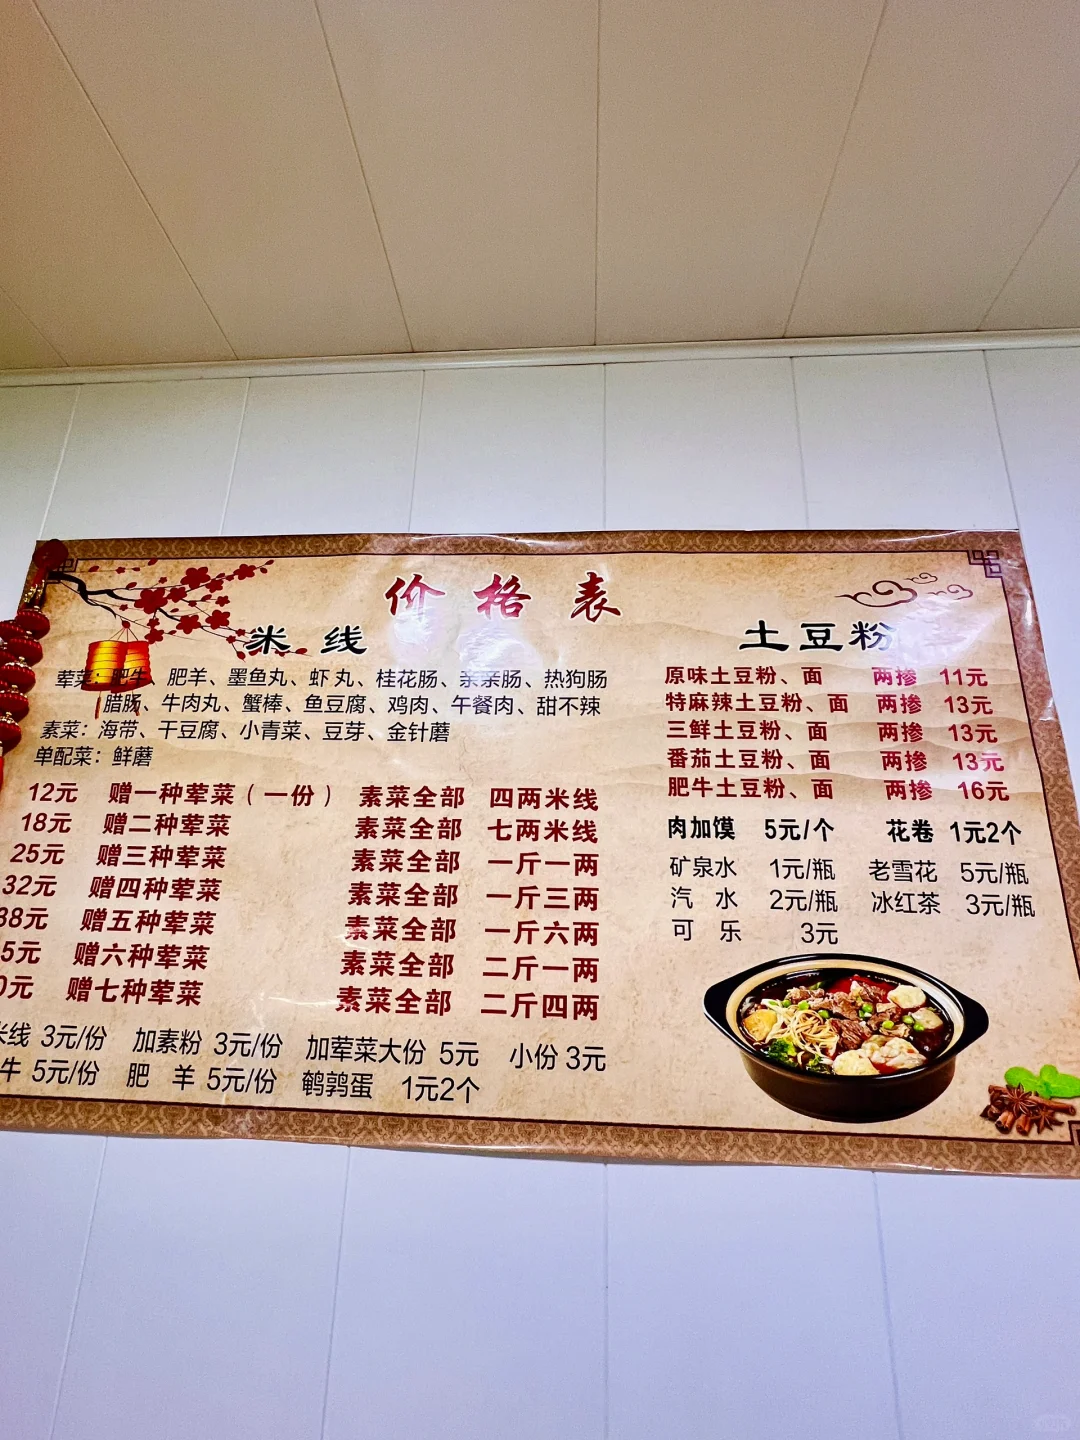 价格表
米线
荤菜：肥牛、肥羊、墨鱼丸、虾丸、桂花肠、亲亲肠、热狗肠
腊肠、牛肉丸、蟹棒、鱼豆腐、鸡肉、午餐肉、甜不辣
素菜：海带、干豆腐、小青菜、豆芽、金针蘑
单配菜：鲜蘑
12元 赠一种荤菜（一份） 素菜全部 四两米线
18元 赠二种荤菜 素菜全部 七两米线
25元 赠三种荤菜 素菜全部 一斤一两
32元 赠四种荤菜 素菜全部 一斤三两
38元 赠五种荤菜 素菜全部 一斤六两
5元 赠六种荤菜 素菜全部 二斤一两
0元 赠七种荤菜 素菜全部 二斤四两
米线 3元/份 加素粉 3元/份 加荤菜大份 5元 小份 3元
牛 5元/份 肥 羊 5元/份 鹌鹑蛋 1元2个
土豆粉
原味土豆粉、面 两掺 11元
特麻辣土豆粉、面 两掺 13元
三鲜土豆粉、面 两掺 13元
番茄土豆粉、面 两掺 13元
肥牛土豆粉、面 两掺 16元
肉加馍 5元/个 花卷 1元2个
矿泉水 1元/瓶 老雪花 5元/瓶
汽 水 2元/瓶 冰红茶 3元/瓶
可 乐 3元